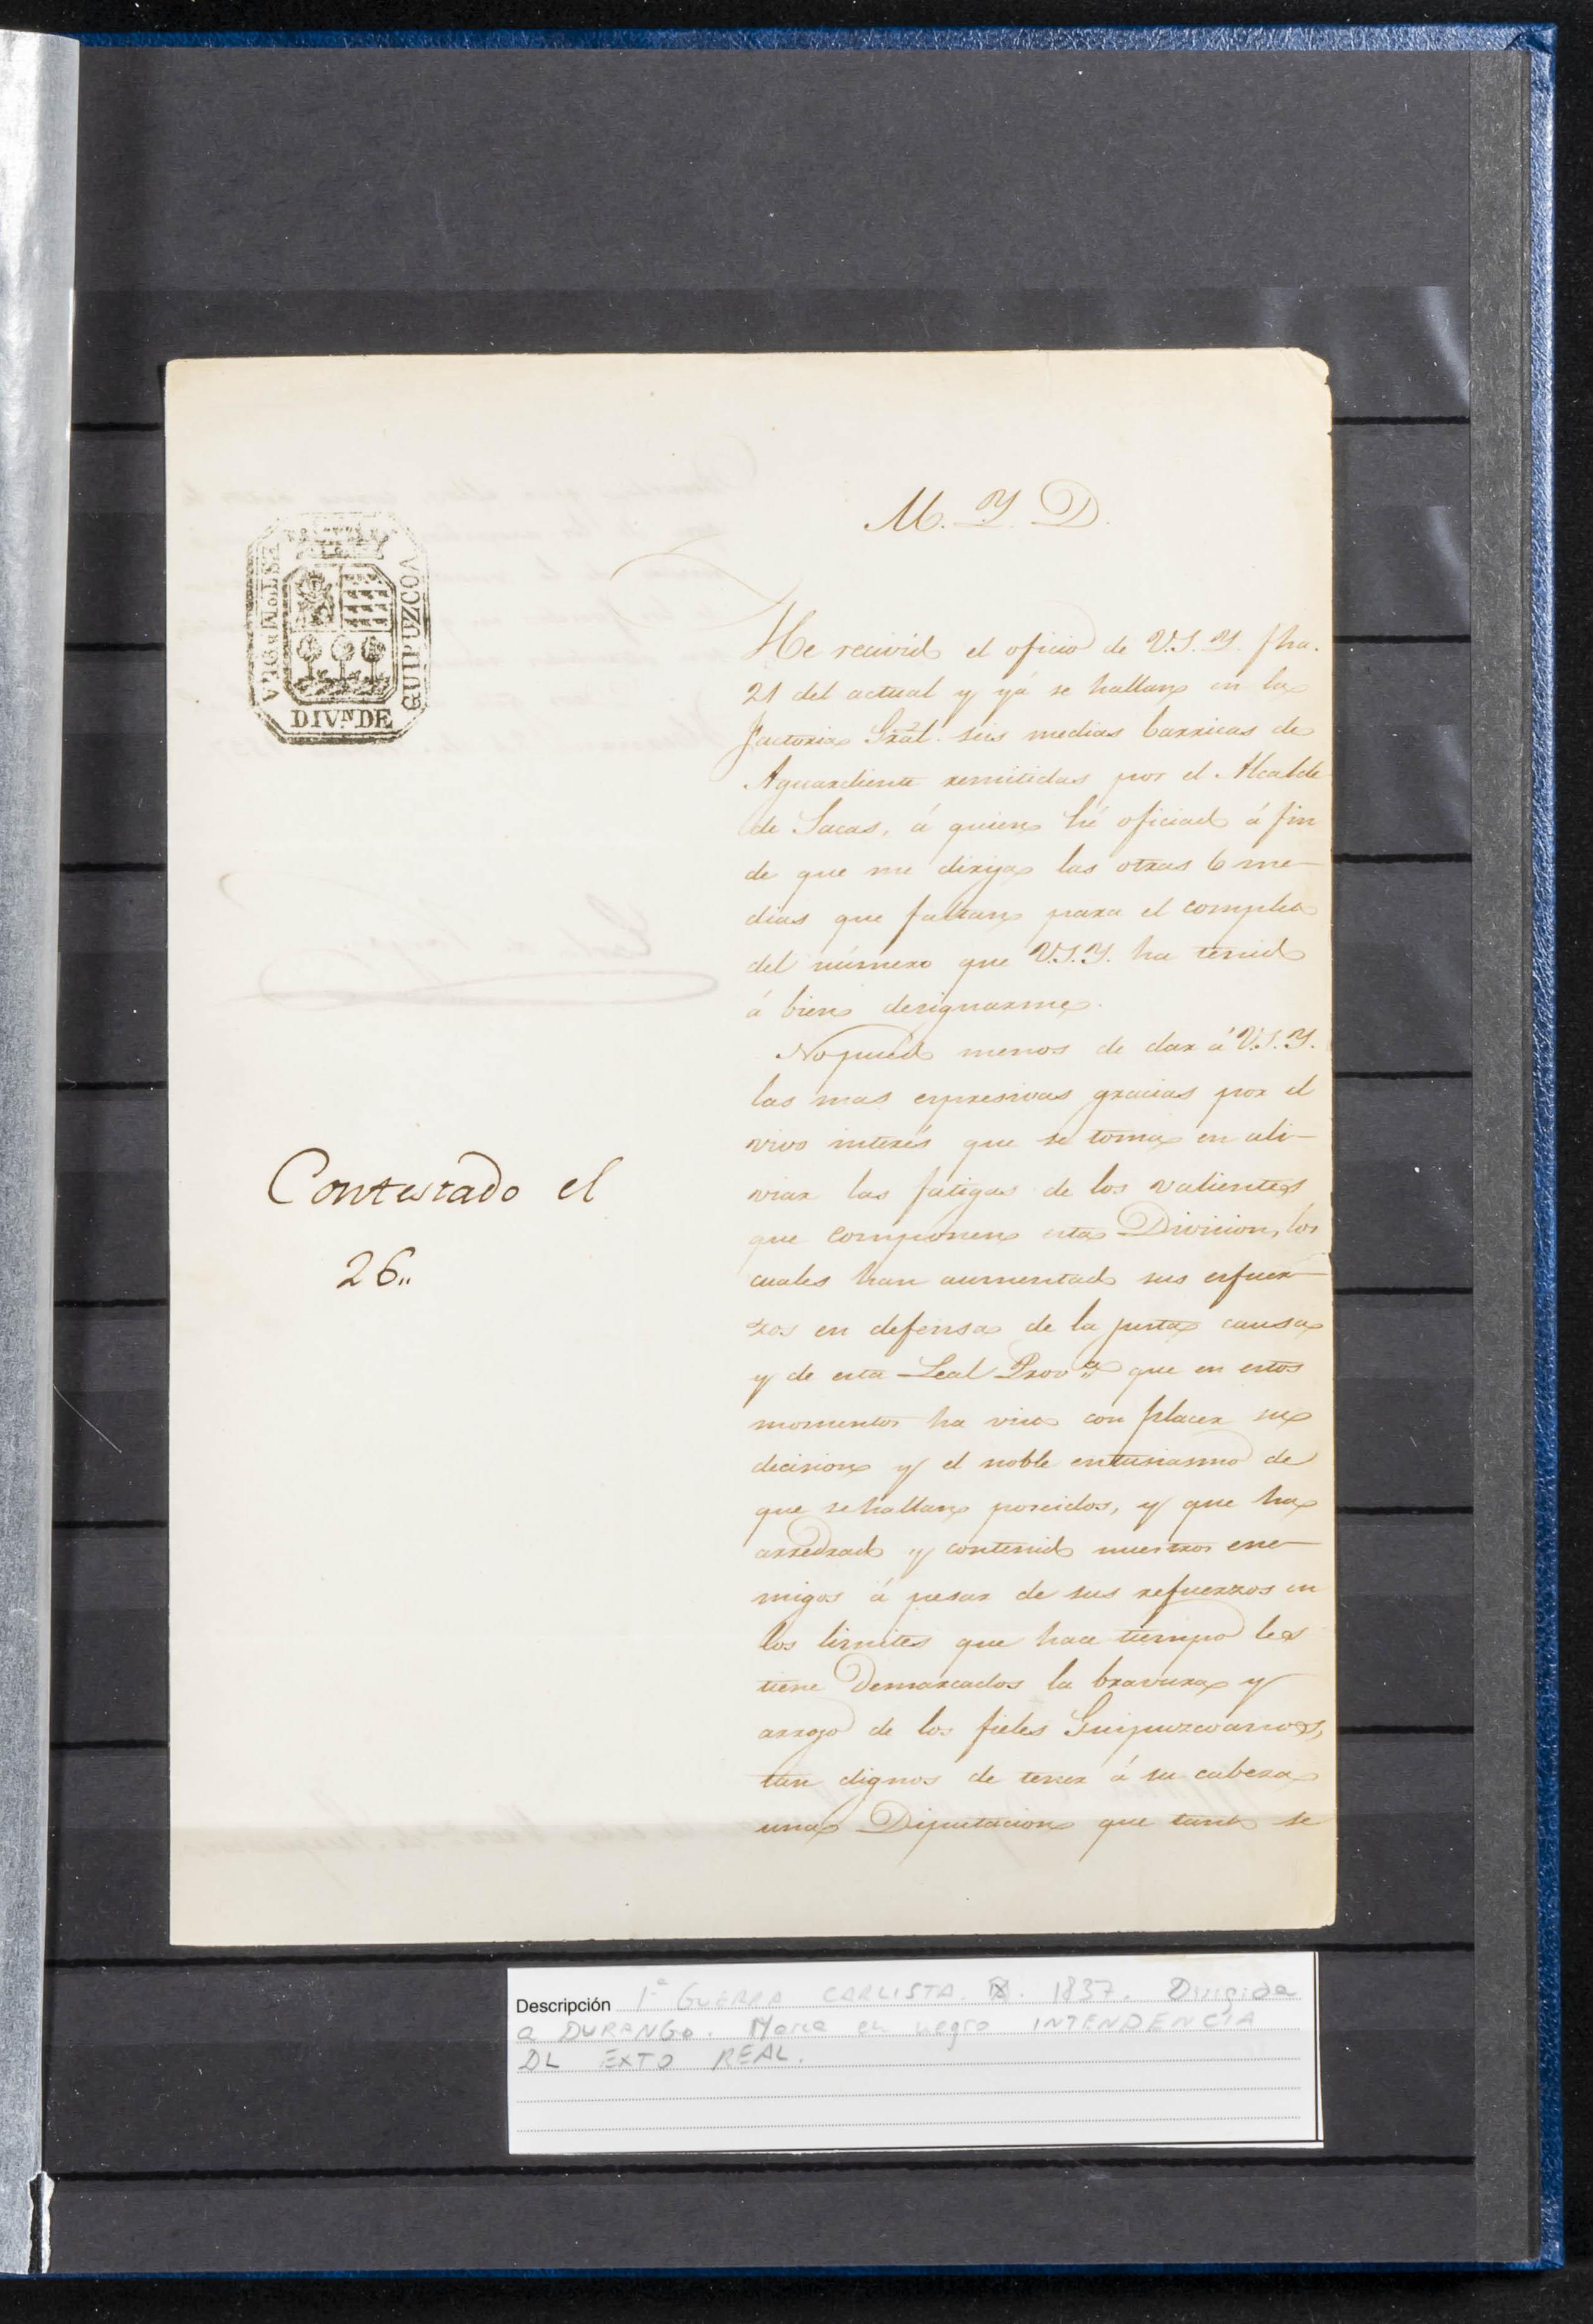 M. Y. D.
DIV.N DE
GUIPUZCOA
He recivido el oficio de V.S.Y. fha.
21 del actual y yá se hallan en la
factoria Gral. seis medias barricas de
Aguardiente remitidas por el Alcalde
de Sacas, á quien hé oficiado á fin
de que me dirija las otras 6 me-
dias que faltan para el completo
del número que V.S.Y. ha tenido
á bien designarme.
No puedo menos de dar á V.S.Y.
las mas expresivas gracias por el
vivo interés que se toma en ali-
viar las fatigas de los valientes
que componen esta Division, los
cuales han aumentado sus esfuer-
zos en defensa de la justa causa
y de esta Leal Prov.a que en estos
momentos ha visto con placer su
decision y el noble entusiasmo de
que se hallan poseidos, y que ha
arredrado y contenido nuestros ene-
migos á pesar de sus refuerzos en
los limites que hace tiempo les
tiene demarcados la bravura y
arrojo de los fieles Guipuzcoanos,
tan dignos de tener á su cabeza
una Diputacion que tanto se
Contestado el
26..
Descripción 1ª GUERRA CARLISTA. 1837. Dirigida
a DURANGO. Marca en negro INTENDENCIA
DL EXTO REAL.